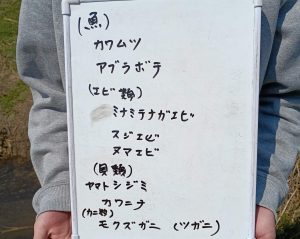 (魚)
カワムツ
アブラボテ
(エビ類)
ミナミテナガエビ
スジエビ
ヌマエビ
(貝類)
ヤマトシジミ
カワニナ
(カニ類)
モクズガニ (ツガニ)